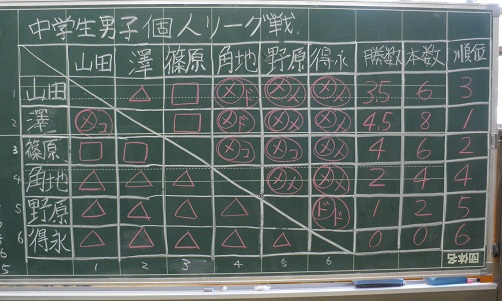 中学生男子個人リーグ戦
山田 澤 篠原 角地 野原 得永 勝数 本数 順位
1 山田 △ □ メド メメ メメ 3.5 6 3
2 澤 メコ □ メド メメ メメ 4.5 8
3 篠原 □ □ メコ メメ メメ 4 6 2
4 角地 △ △ △ メメ メメ 2 4 4
5 野原 △ △ △ △ ドド 1 2 5
6 得永 △ △ △ △ △ 0 0 6
1 2 3 4 5 6 団体名